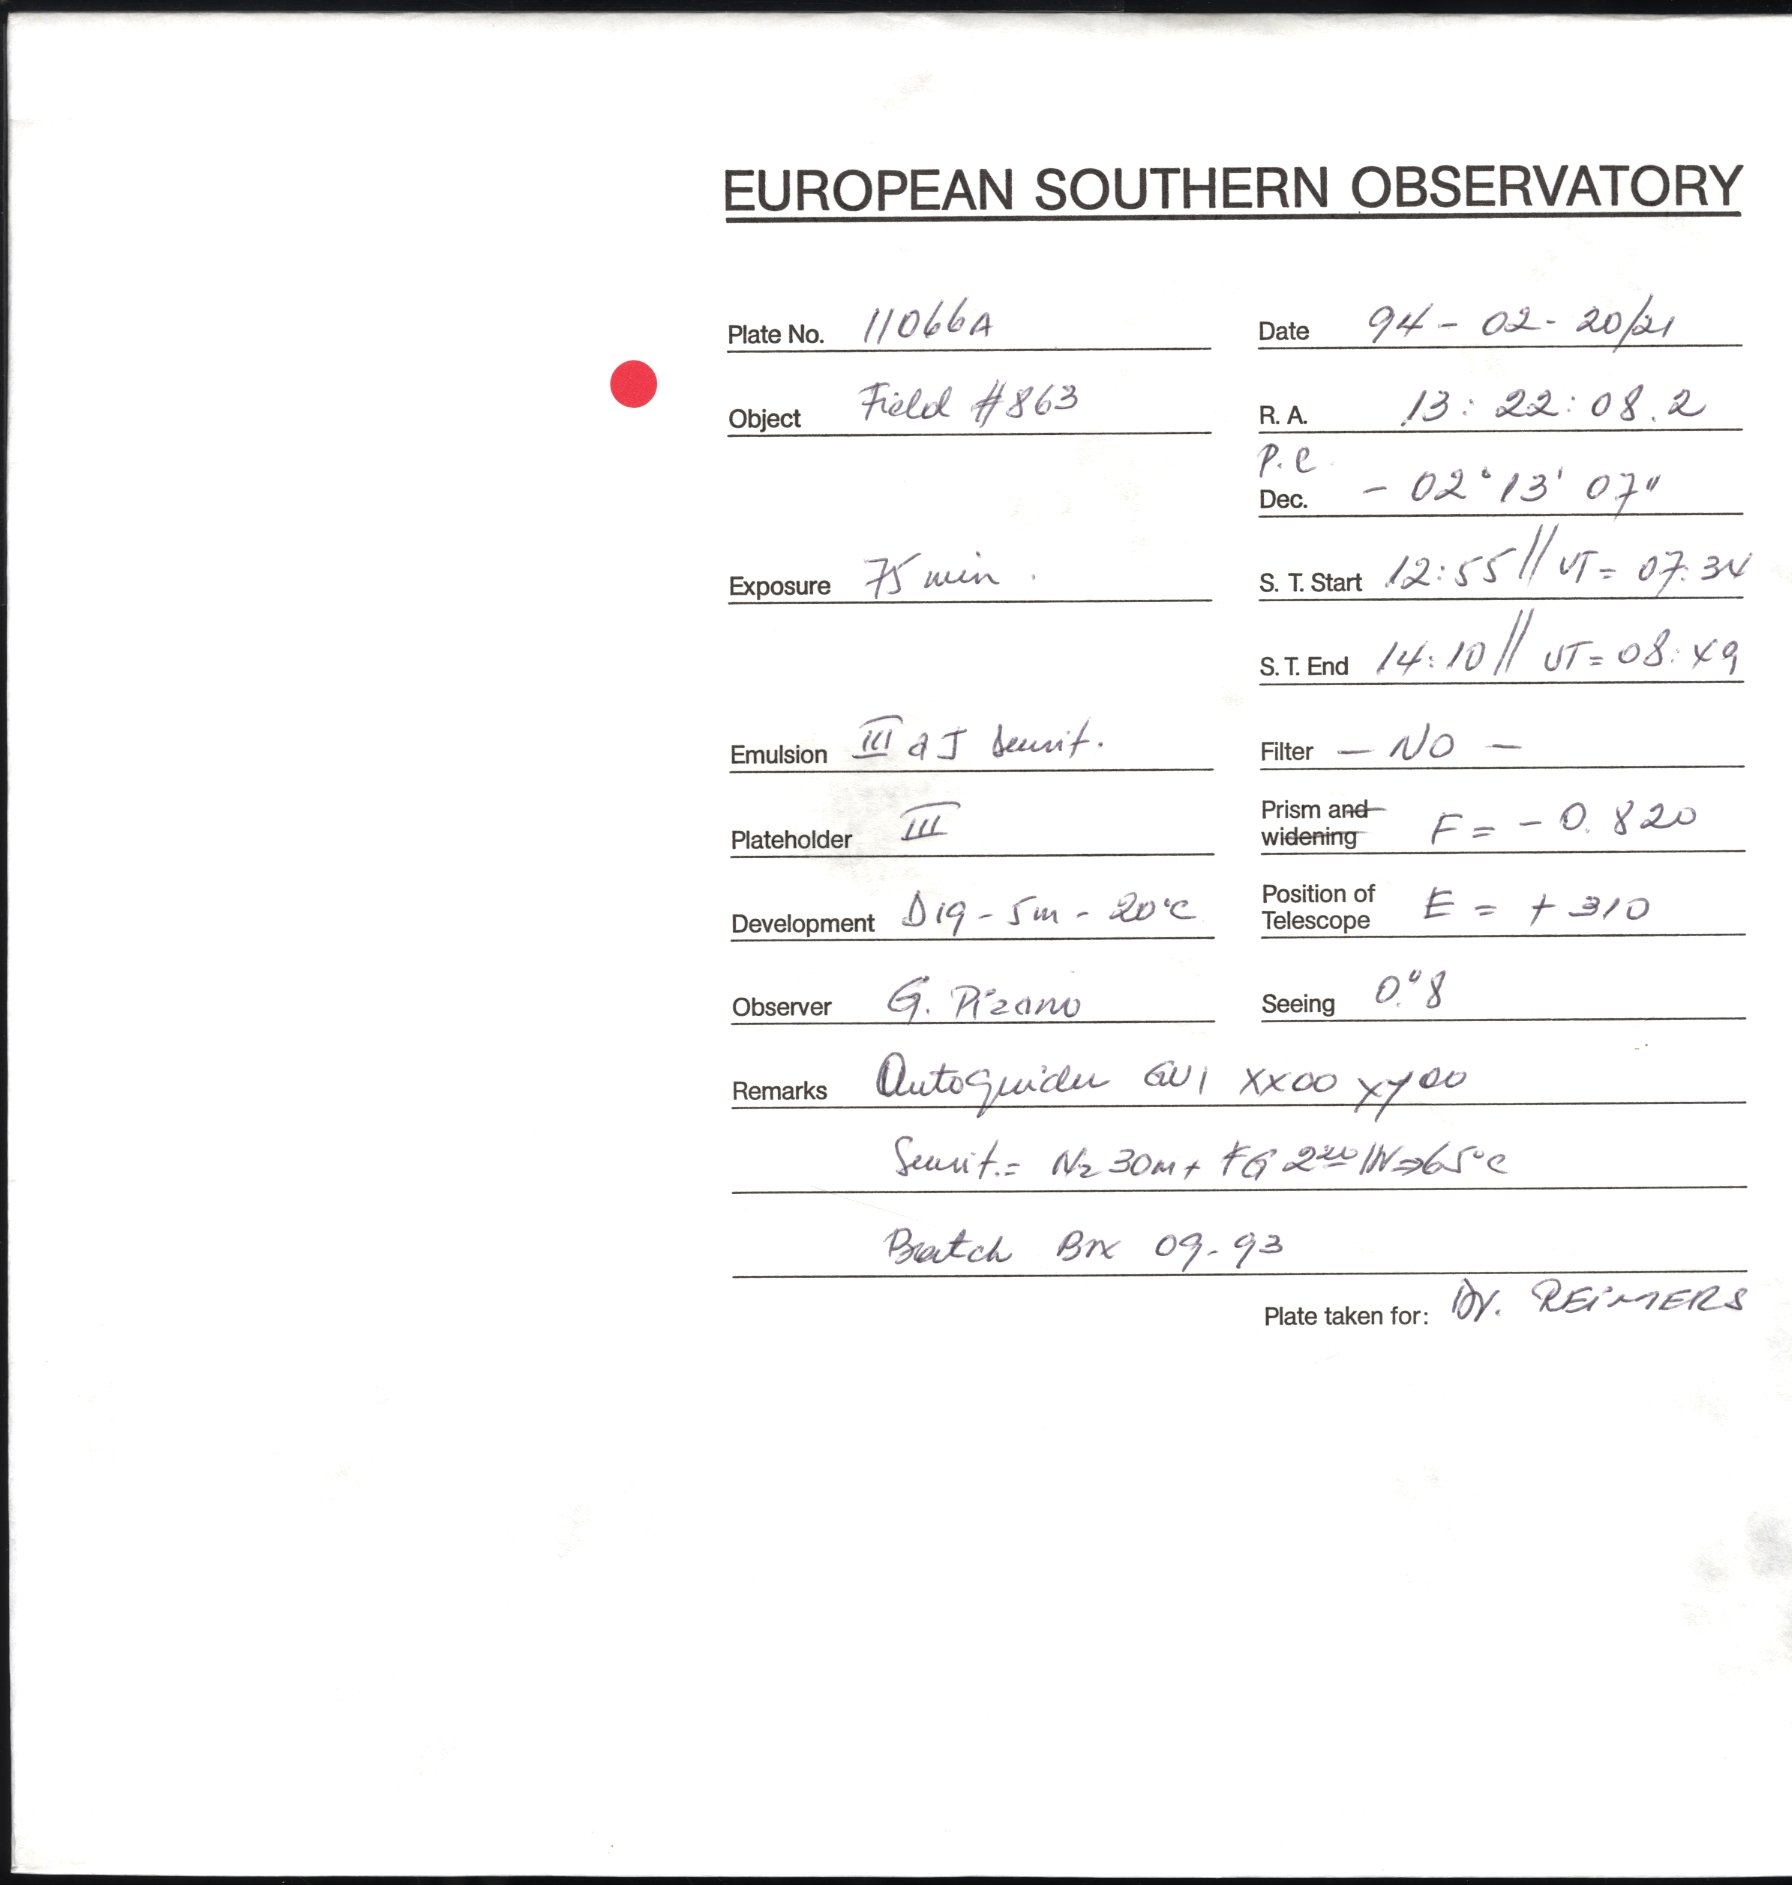 EUROPEAN SOUTHERN OBSERVATORY
Plate No. 11066A Date 94 - 02 - 20/21
Object Field #863 R. A. 13 : 22 : 08.2
P. C
Dec. - 02° 13' 07"
Exposure 75 min. S. T. Start 12:55 // UT = 07:34
S. T. End 14:10 // UT = 08:49
Emulsion III a J sensit. Filter — NO —
Plateholder III Prism and widening F = - 0.820
Development D19 - 5m - 20°C Position of Telescope E = + 310
Observer G. Pizarro Seeing 0."8
Remarks Autoguider GU1 XX00 XY00
Sensit. = N2 30m + FG 2 65°C
Batch Bx 09-93
Plate taken for: Dr. REIMERS